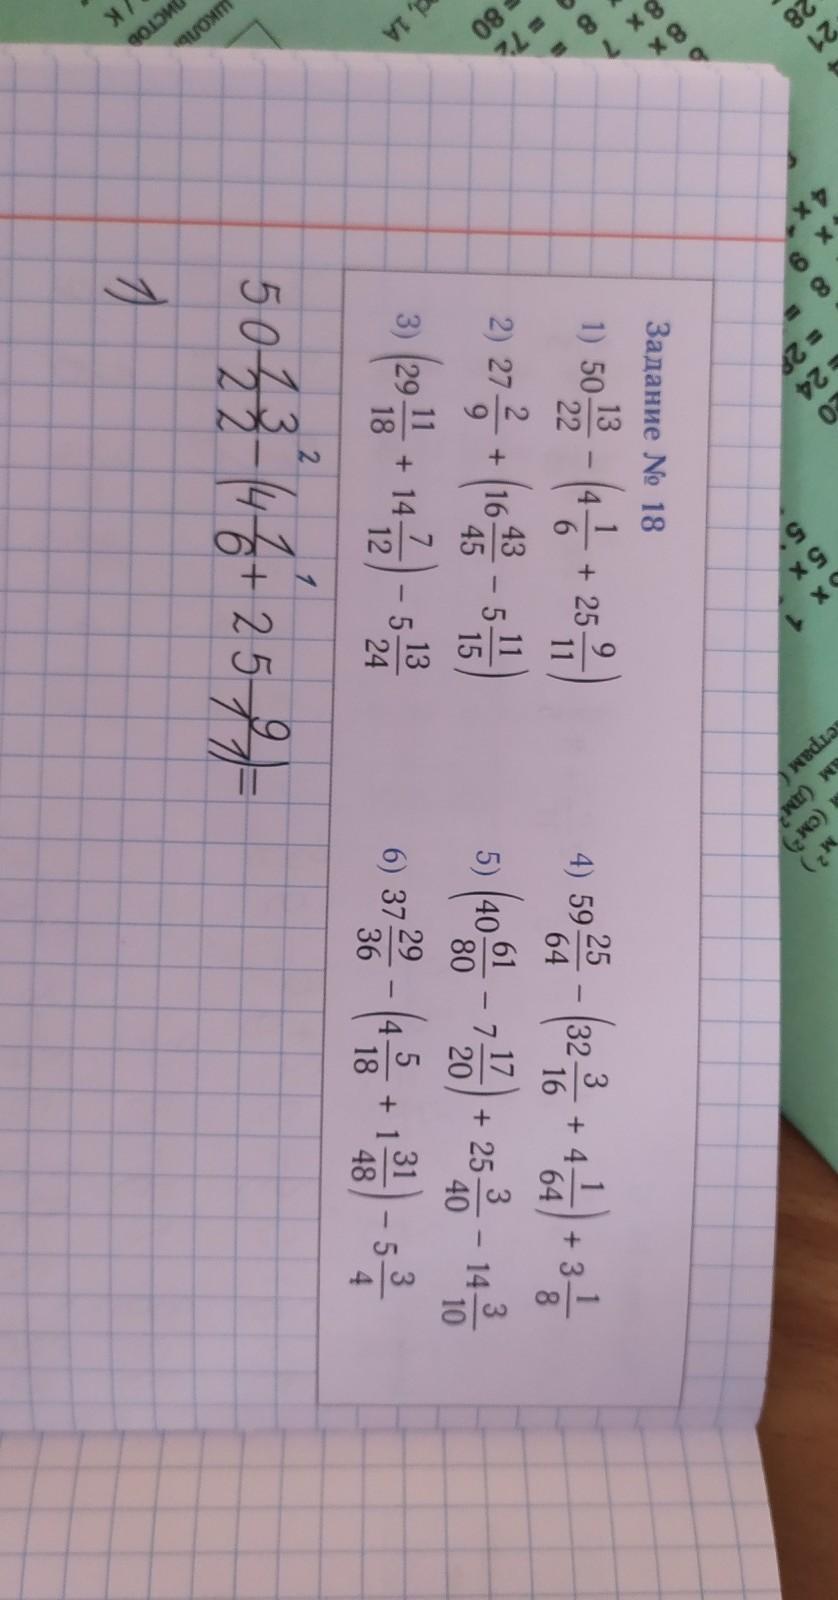 Задание № 18
1) 50 13/22 − (4 1/6 + 25 9/11)
2) 27 2/9 + (16 43/45 − 5 11/15)
3) (29 11/18 + 14 7/12) − 5 13/24
4) 59 25/64 − (32 3/16 + 4 1/64) + 3 1/8
5) (40 61/80 − 7 17/20) + 25 3/40 − 14 3/10
6) 37 29/36 − (4 5/18 + 1 31/48) − 5 3/4
2 1
50 13/22 − (4 1/6 + 25 9/11) =
1)